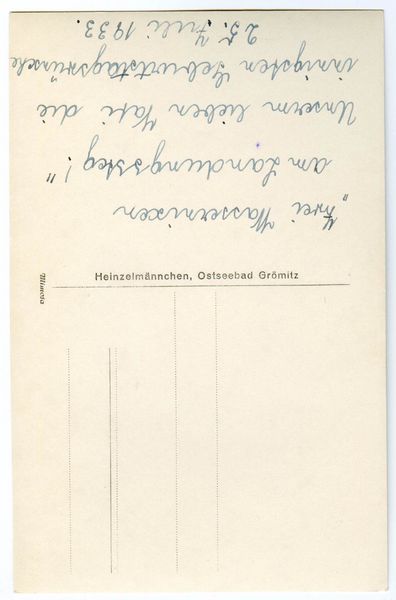 „Zwei Wassernixen
am Landungssteg!"
Unserm lieben Vati die
innigsten Geburtstagswünsche
25. Juli 1933.
Heinzelmännchen, Ostseebad Grömitz
Mimosa